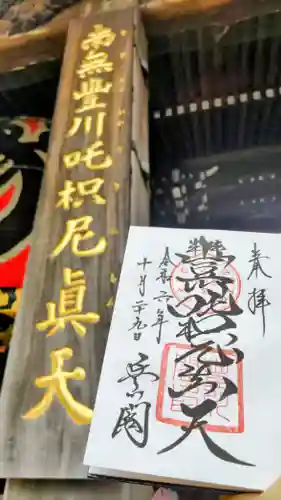 南無豊川吒枳尼眞天
奉拝
豊川吒枳尼眞天
令和六年
十月二十九日